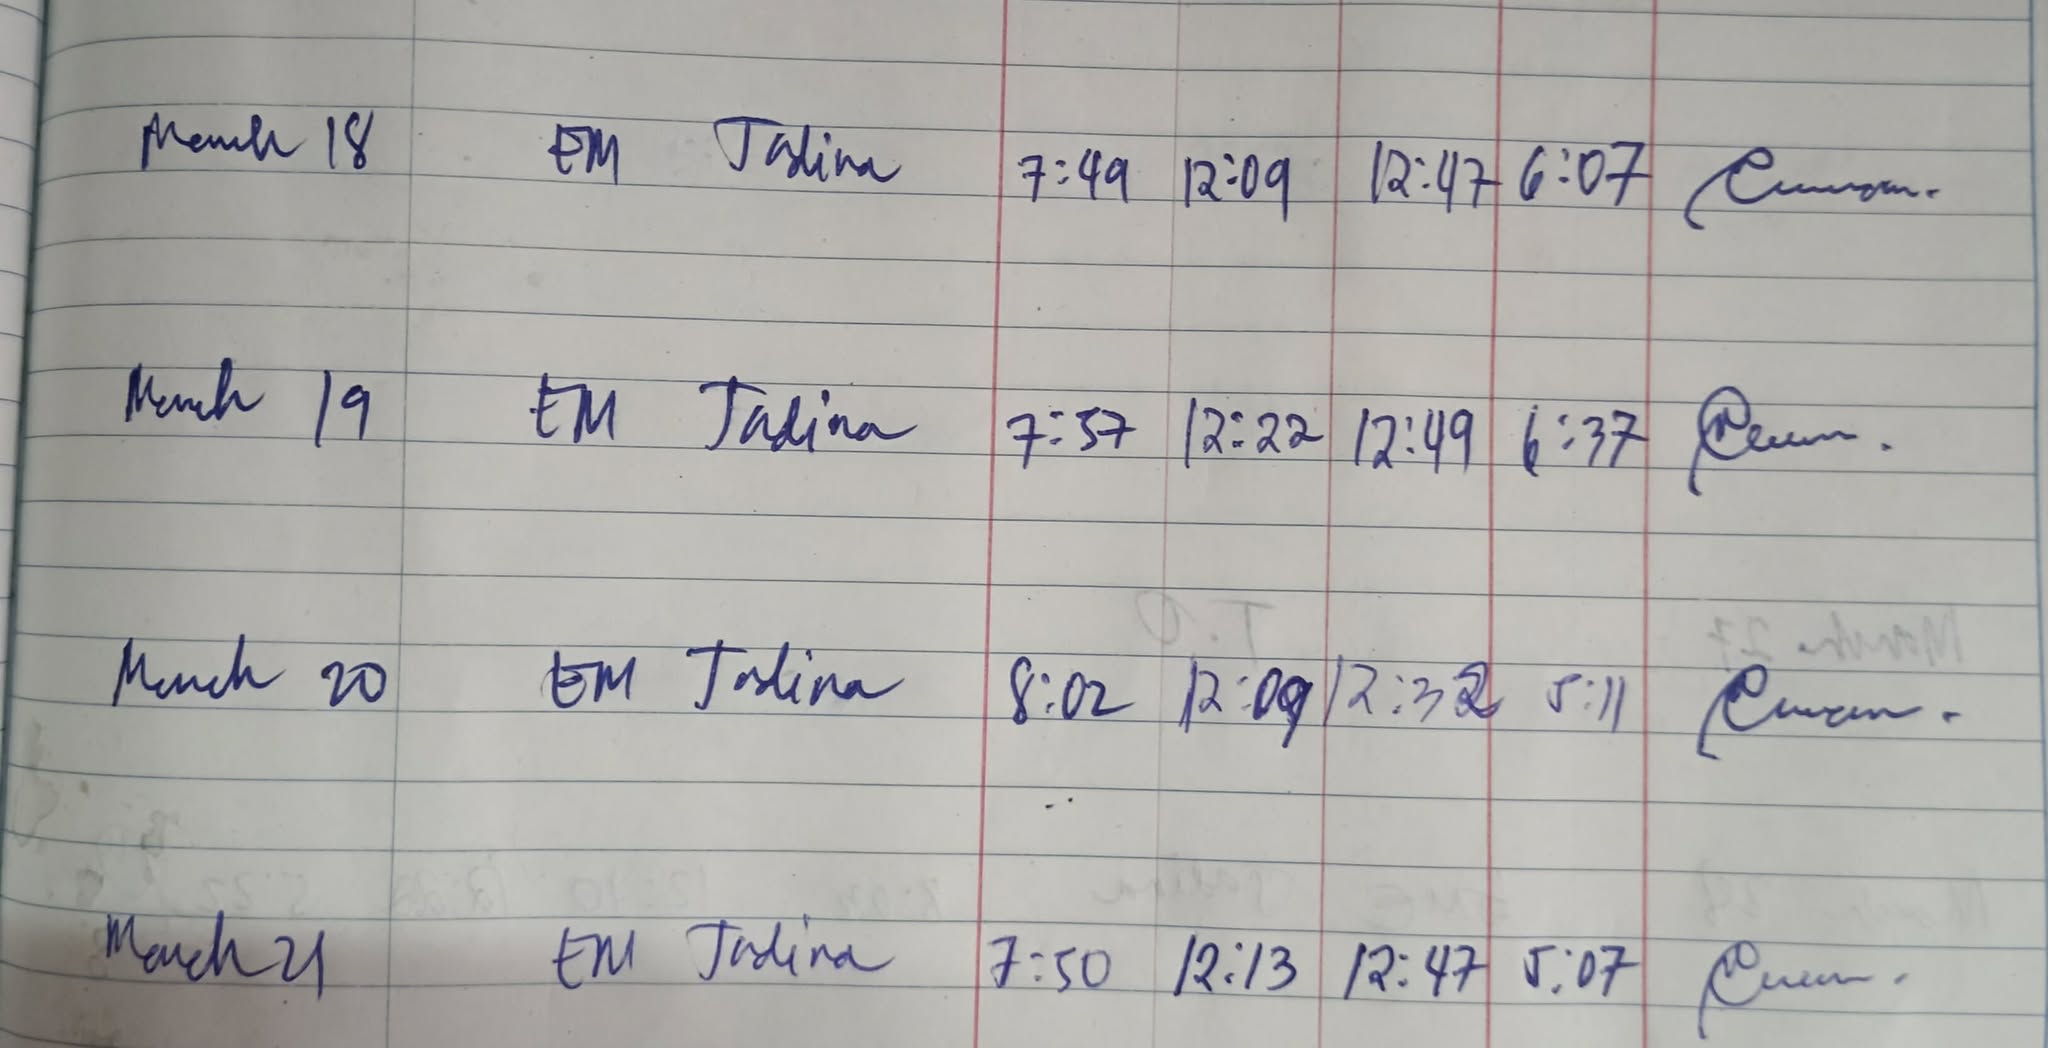 March 18 EM Jadina 7:49 12:09 12:47 6:07
March 19 EM Jadina 7:57 12:22 12:49 6:37
March 20 EM Jadina 8:02 12:09 12:32 5:11
March 21 EM Jadina 7:50 12:13 12:47 5:07